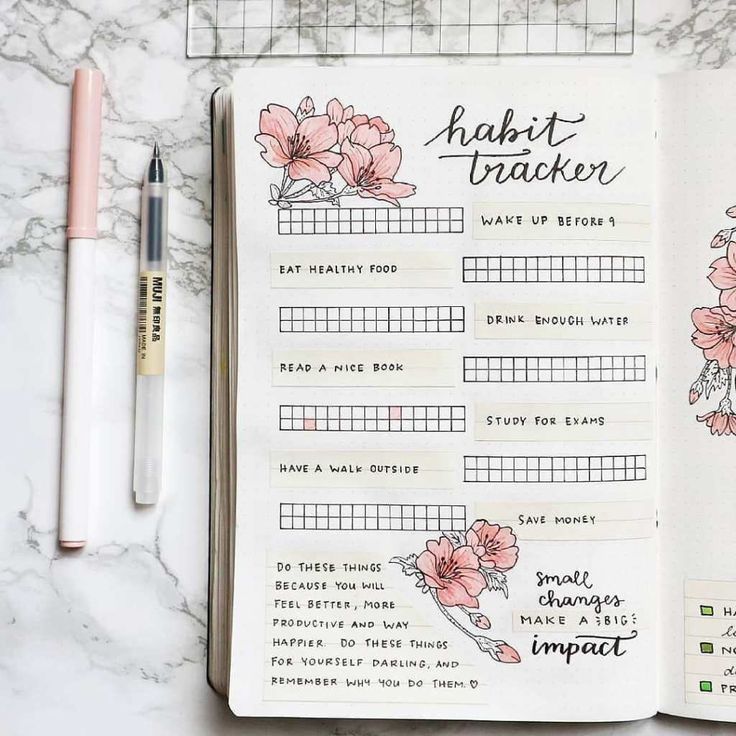 habit
tracker
WAKE UP BEFORE 9
EAT HEALTHY FOOD
DRINK ENOUGH WATER
READ A NICE BOOK
STUDY FOR EXAMS
HAVE A WALK OUTSIDE
SAVE MONEY
DO THESE THINGS
BECAUSE YOU WILL
FEEL BETTER, MORE
PRODUCTIVE AND WAY
HAPPIER. DO THESE THINGS
FOR YOURSELF DARLING, AND
REMEMBER WHY YOU DO THEM. ♡
small
changes
MAKE A BIG
impact
MUJI 無印良品
MADE IN